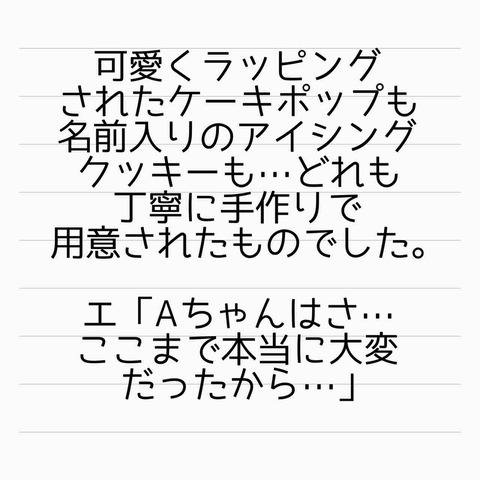 可愛くラッピング
されたケーキポップも
名前入りのアイシング
クッキーも…どれも
丁寧に手作りで
用意されたものでした。
エ「Aちゃんはさ…
ここまで本当に大変
だったから…」